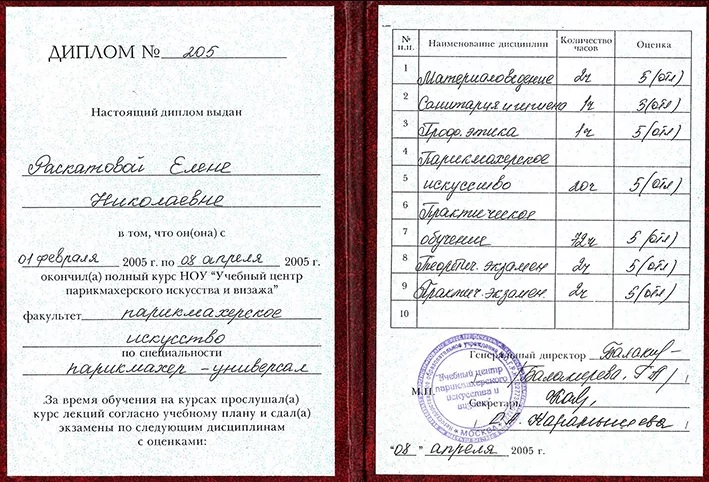 ДИПЛОМ № 205
Настоящий диплом выдан
Раскатовой Елене
Николаевне
в том, что он(она) с
01 февраля 2005 г. по 08 апреля 2005 г.
окончил(а) полный курс НОУ "Учебный центр
парикмахерского искусства и визажа"
факультет парикмахерское
искусство
по специальности
парикмахер-универсал
За время обучения на курсах прослушал(а)
курс лекций согласно учебному плану и сдал(а)
экзамены по следующим дисциплинам
с оценками:
№ п.п. Наименование дисциплин Количество часов Оценка
1 Материаловедение 2ч 5 (отл)
2 Санитария и гигиена 1ч 5 (отл)
3 Проф. этика 1ч 5 (отл)
4 Парикмахерское
5 искусство 20ч 5 (отл)
6 Практическое
7 обучение 72ч 5 (отл)
8 Теоретич. экзамен 2ч 5 (отл)
9 Практич. экзамен 2ч 5 (отл)
10
Генеральный директор
М.П.
Секретарь
Карамышева
Учебный центр
парикмахерского
искусства и
визажа
МОСКВА
"08" апреля 2005 г.